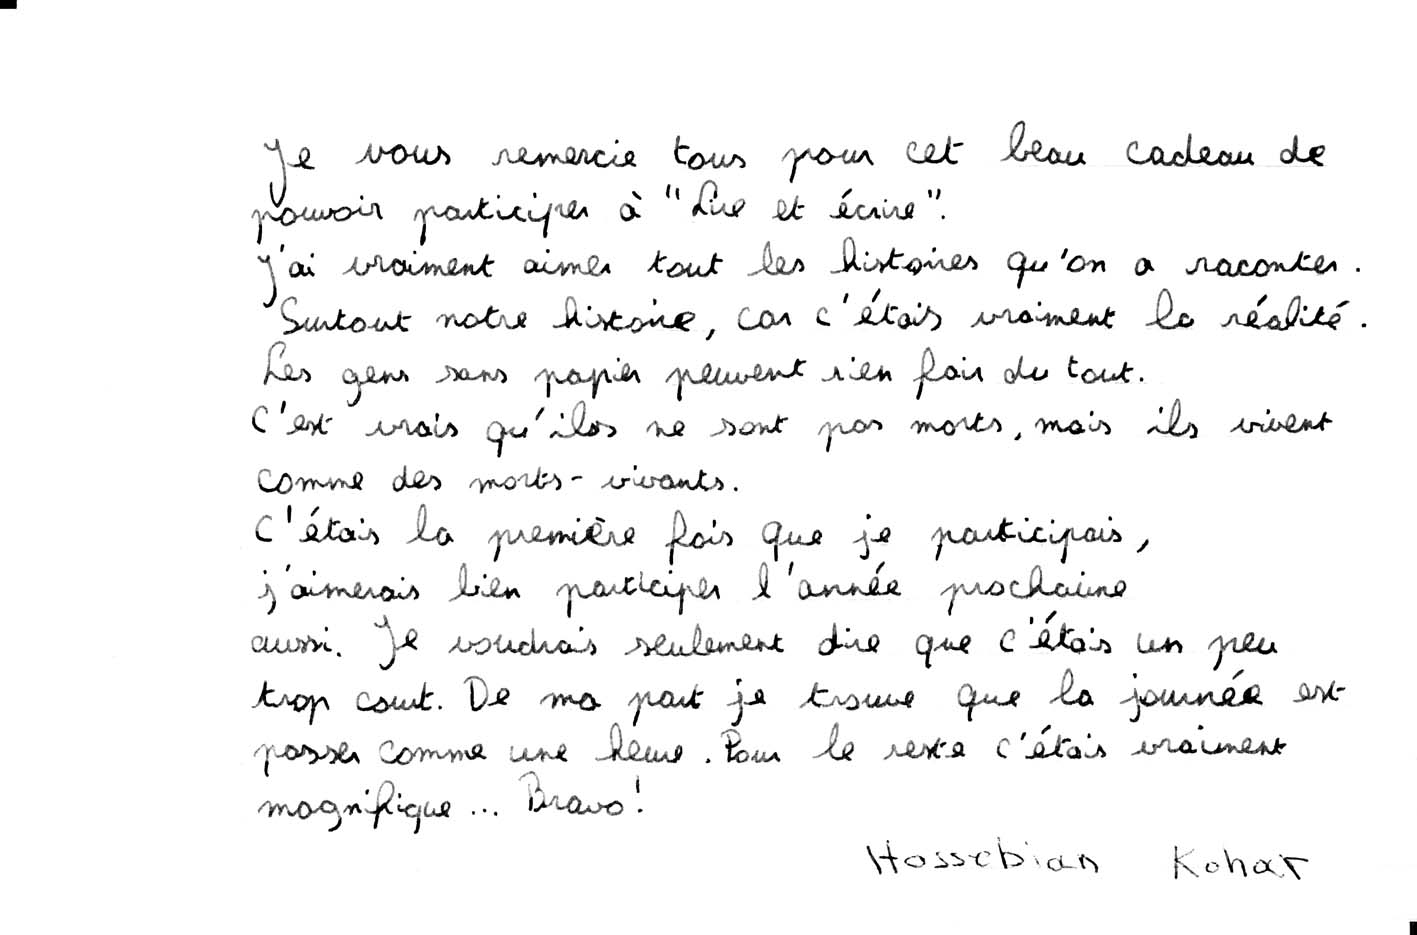 Je vous remercie tous pour cet beau cadeau de
pouvoir participer à "Lire et écrire".
J'ai vraiment aimer tout les histoires qu'on a raconter.
Surtout notre histoire, car c'étais vraiment la réalité.
Les gens sans papier peuvent rien fair du tout.
C'est vrais qu'ilos ne sont pas morts, mais ils vivent
comme des morts-vivants.
C'étais la première fois que je participais,
j'aimerais bien participer l'année prochaine
aussi. Je voudrais seulement dire que c'étais un peu
trop court. De ma part je trouve que la journée est
passer comme une heure. Pour le reste c'étais vraiment
magnifique... Bravo!
Hossebian Kohar